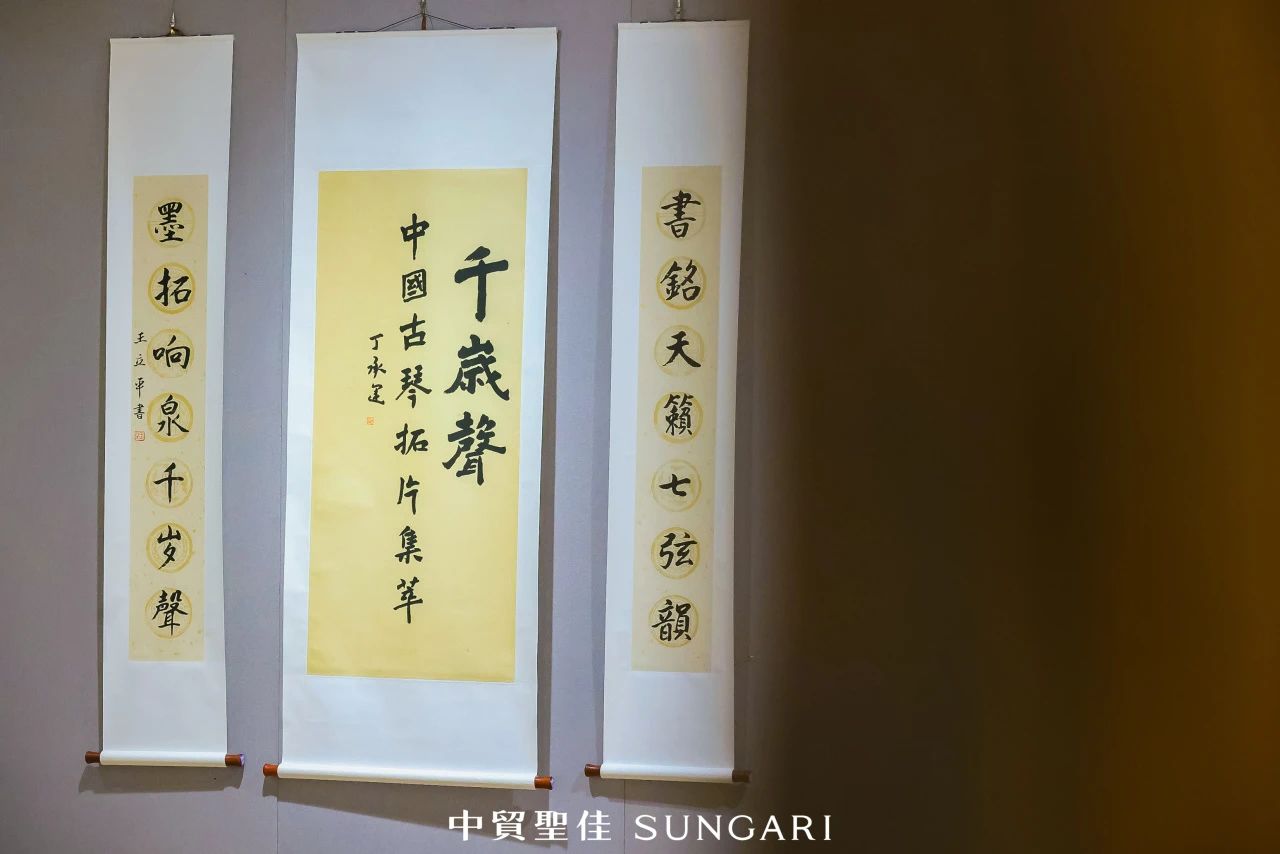 書銘天籟七弦韻
千嵗聲
中國古琴拓片集萃
丁承運
墨拓响泉千岁聲
王立平書
中貿聖佳 SUNGARI